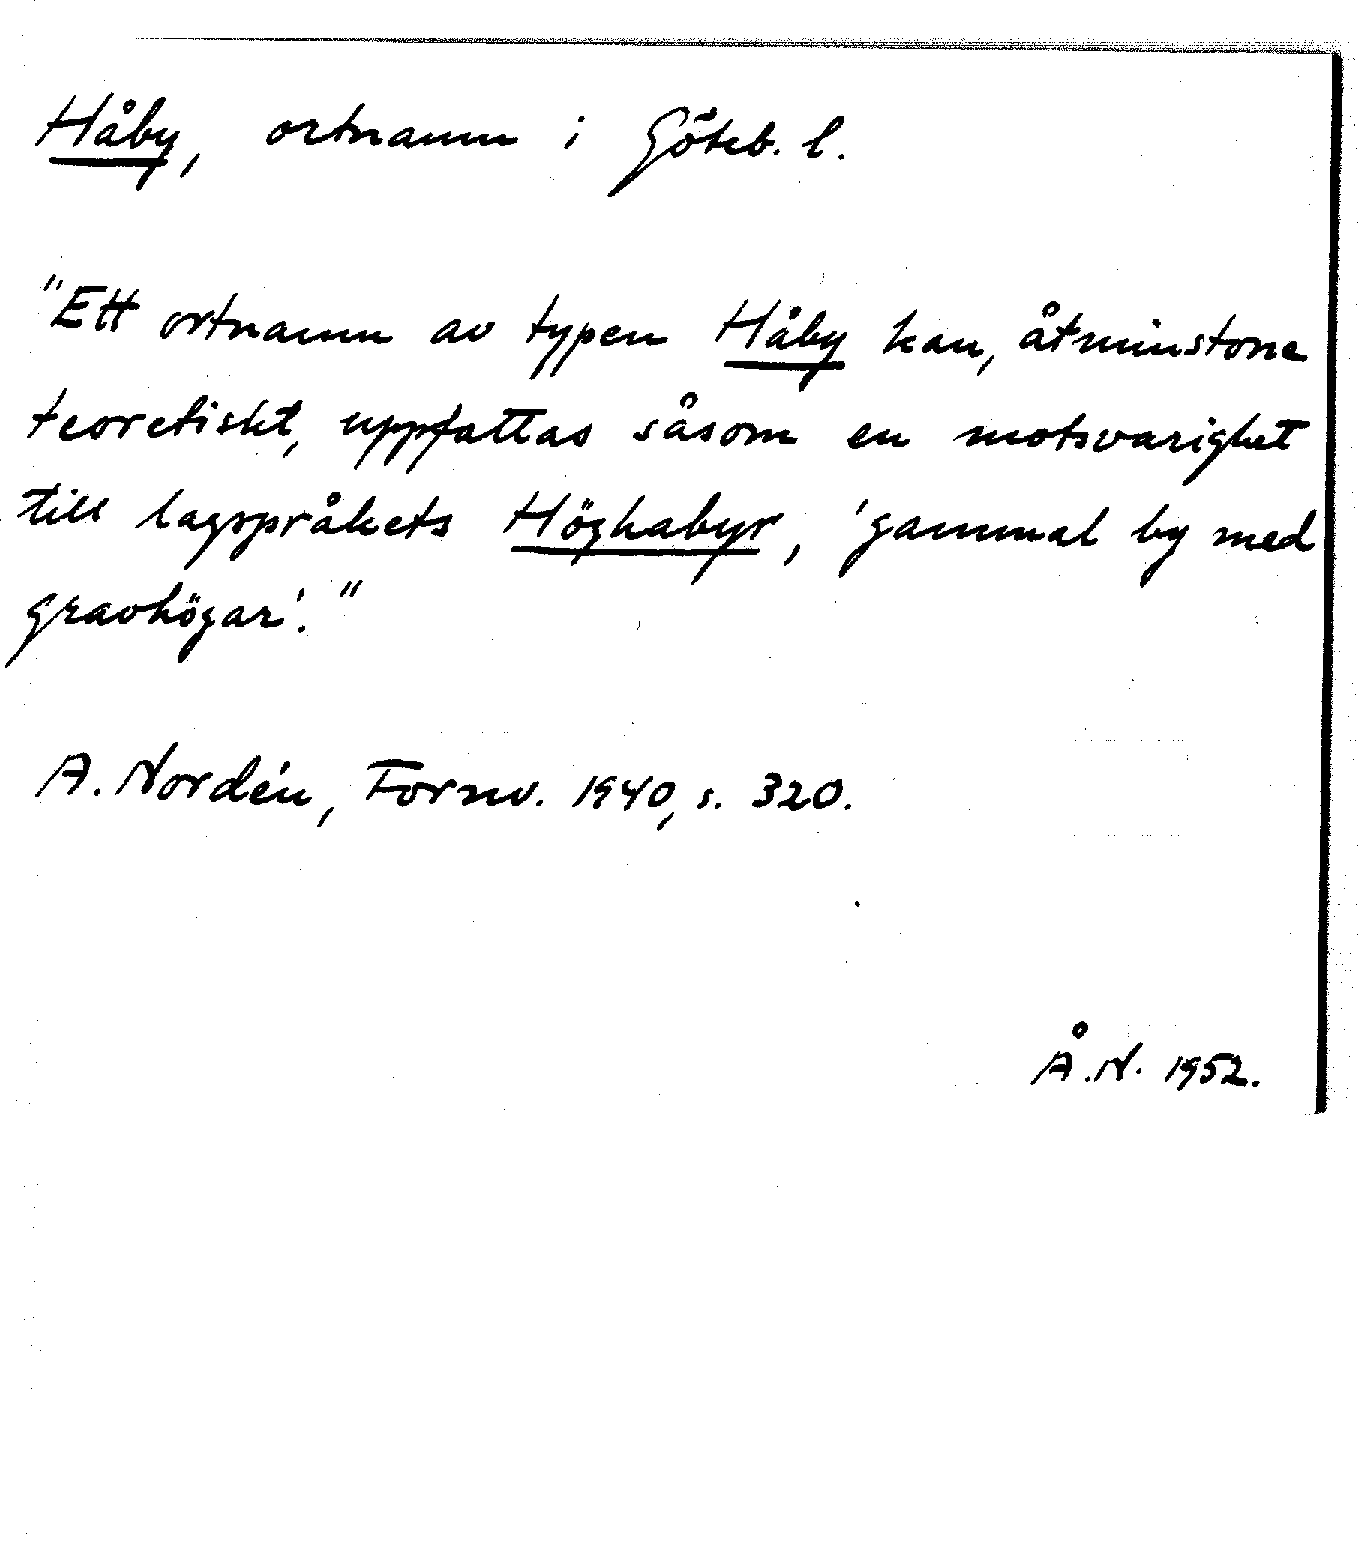 Håby, ortnamn i Göteb. l.
"Ett ortnamn av typen Håby kan, åtminstone
teoretiskt, uppfattas såsom en motsvarighet
till lagspråkets Höghabyr, 'gammal by med
gravhögar'."
A. Nordén, Fornv. 1940, s. 320.
Å.N. 1952.